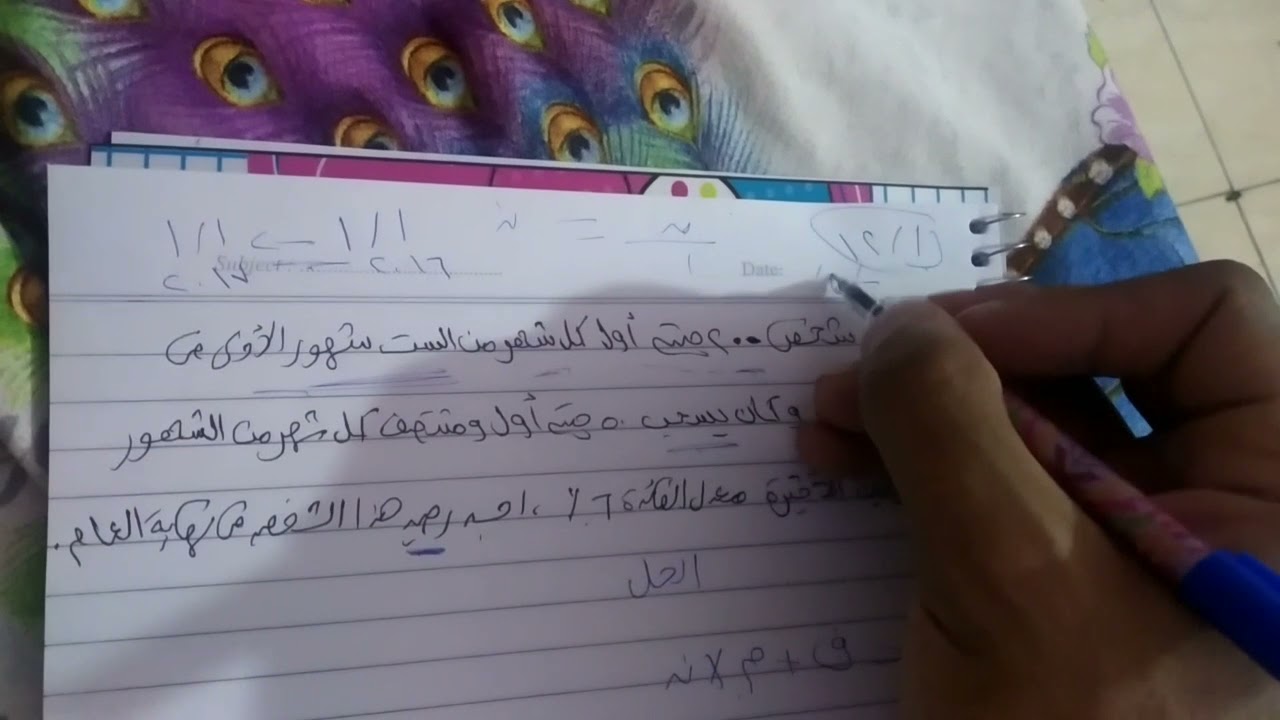 ١/١ ← ١/١ ن = ن/١ ١٢/١
Subject: ٢٠١٦ ٢٠١٧ Date:
شخص ٢٠٠ جنيه أول كل شهر من الست شهور الأولى من
وكان يسحب ٥٠ جنيه أول ومنتصف كل شهر من الشهور
الأخيرة معدل الفائدة ٦٪ ، احسب رصيد هذا الشخص في نهاية العام .
الحل
ف + م × ن